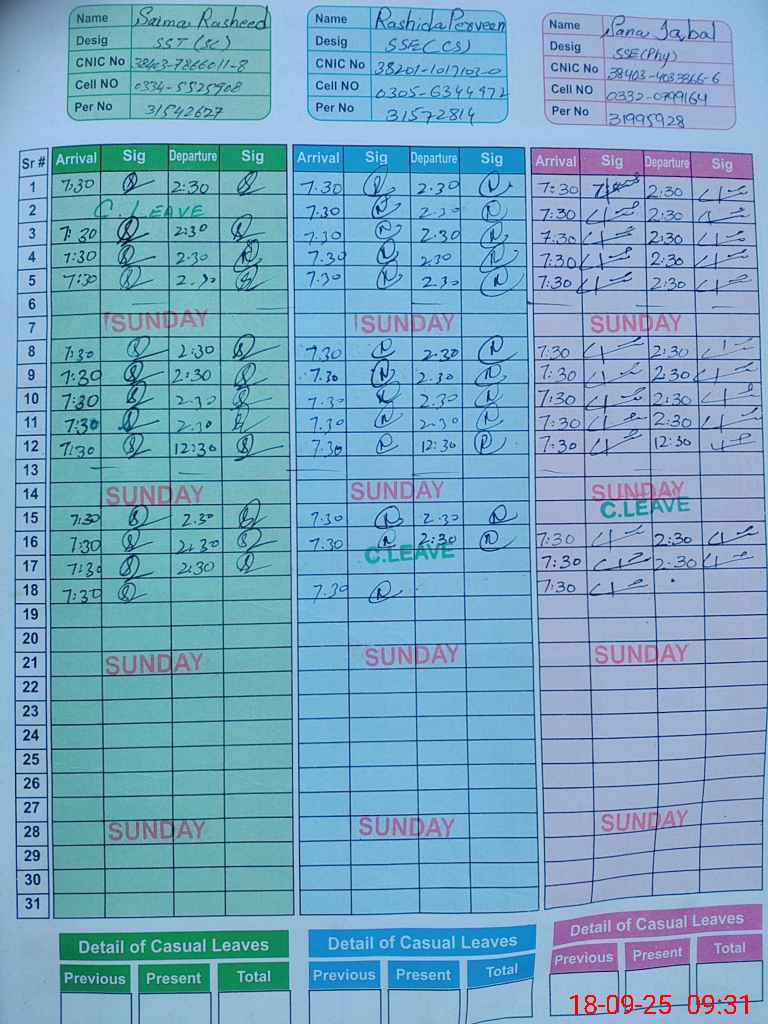 Name Saima Rasheed
Desig SST (SC)
CNIC No 38403-7866011-8
Cell NO 0334-5525908
Per No 31542627
Name Rashida Perveen
Desig SSE (CS)
CNIC No 38201-1017103-0
Cell NO 0305-6344972
Per No 31572814
Name Sana Iqbal
Desig SSE (Phy)
CNIC No
Cell NO 0332-0799164
Per No 31995928
Sr # Arrival Sig Departure Sig Arrival Sig Departure Sig Arrival Sig Departure Sig
1 7:30 2:30 7.30 2.30 7:30 2:30
2 C.LEAVE 7.30 2.30 7:30 2:30
3 7:30 2:30 7.30 2.30 7.30 2:30
4 7:30 2.30 7.30 2.30 7:30 2:30
5 7:30 2.30 7.30 2.30 7:30 2:30
6
7 SUNDAY SUNDAY SUNDAY
8 7:30 2:30 7.30 2.30 7:30 2:30
9 7:30 2:30 7.30 2.30 7:30 2:30
10 7:30 2.30 7.30 2.30 7:30 2:30
11 7:30 2.30 7.30 2.30 7:30 2:30
12 7:30 12:30 7.30 12:30 7:30 12:30
13
14 SUNDAY SUNDAY SUNDAY
15 7:30 2.30 7.30 2.30 C.LEAVE
16 7:30 2:30 7.30 2:30 7:30 2:30
17 7:30 2:30 C.LEAVE 7:30 2:30
18 7:30 7.30 7:30
19
20
21 SUNDAY SUNDAY SUNDAY
22
23
24
25
26
27
28 SUNDAY SUNDAY SUNDAY
29
30
31
Detail of Casual Leaves
Previous Present Total
Detail of Casual Leaves
Previous Present Total
Detail of Casual Leaves
Previous Present Total
18-09-25 09:31